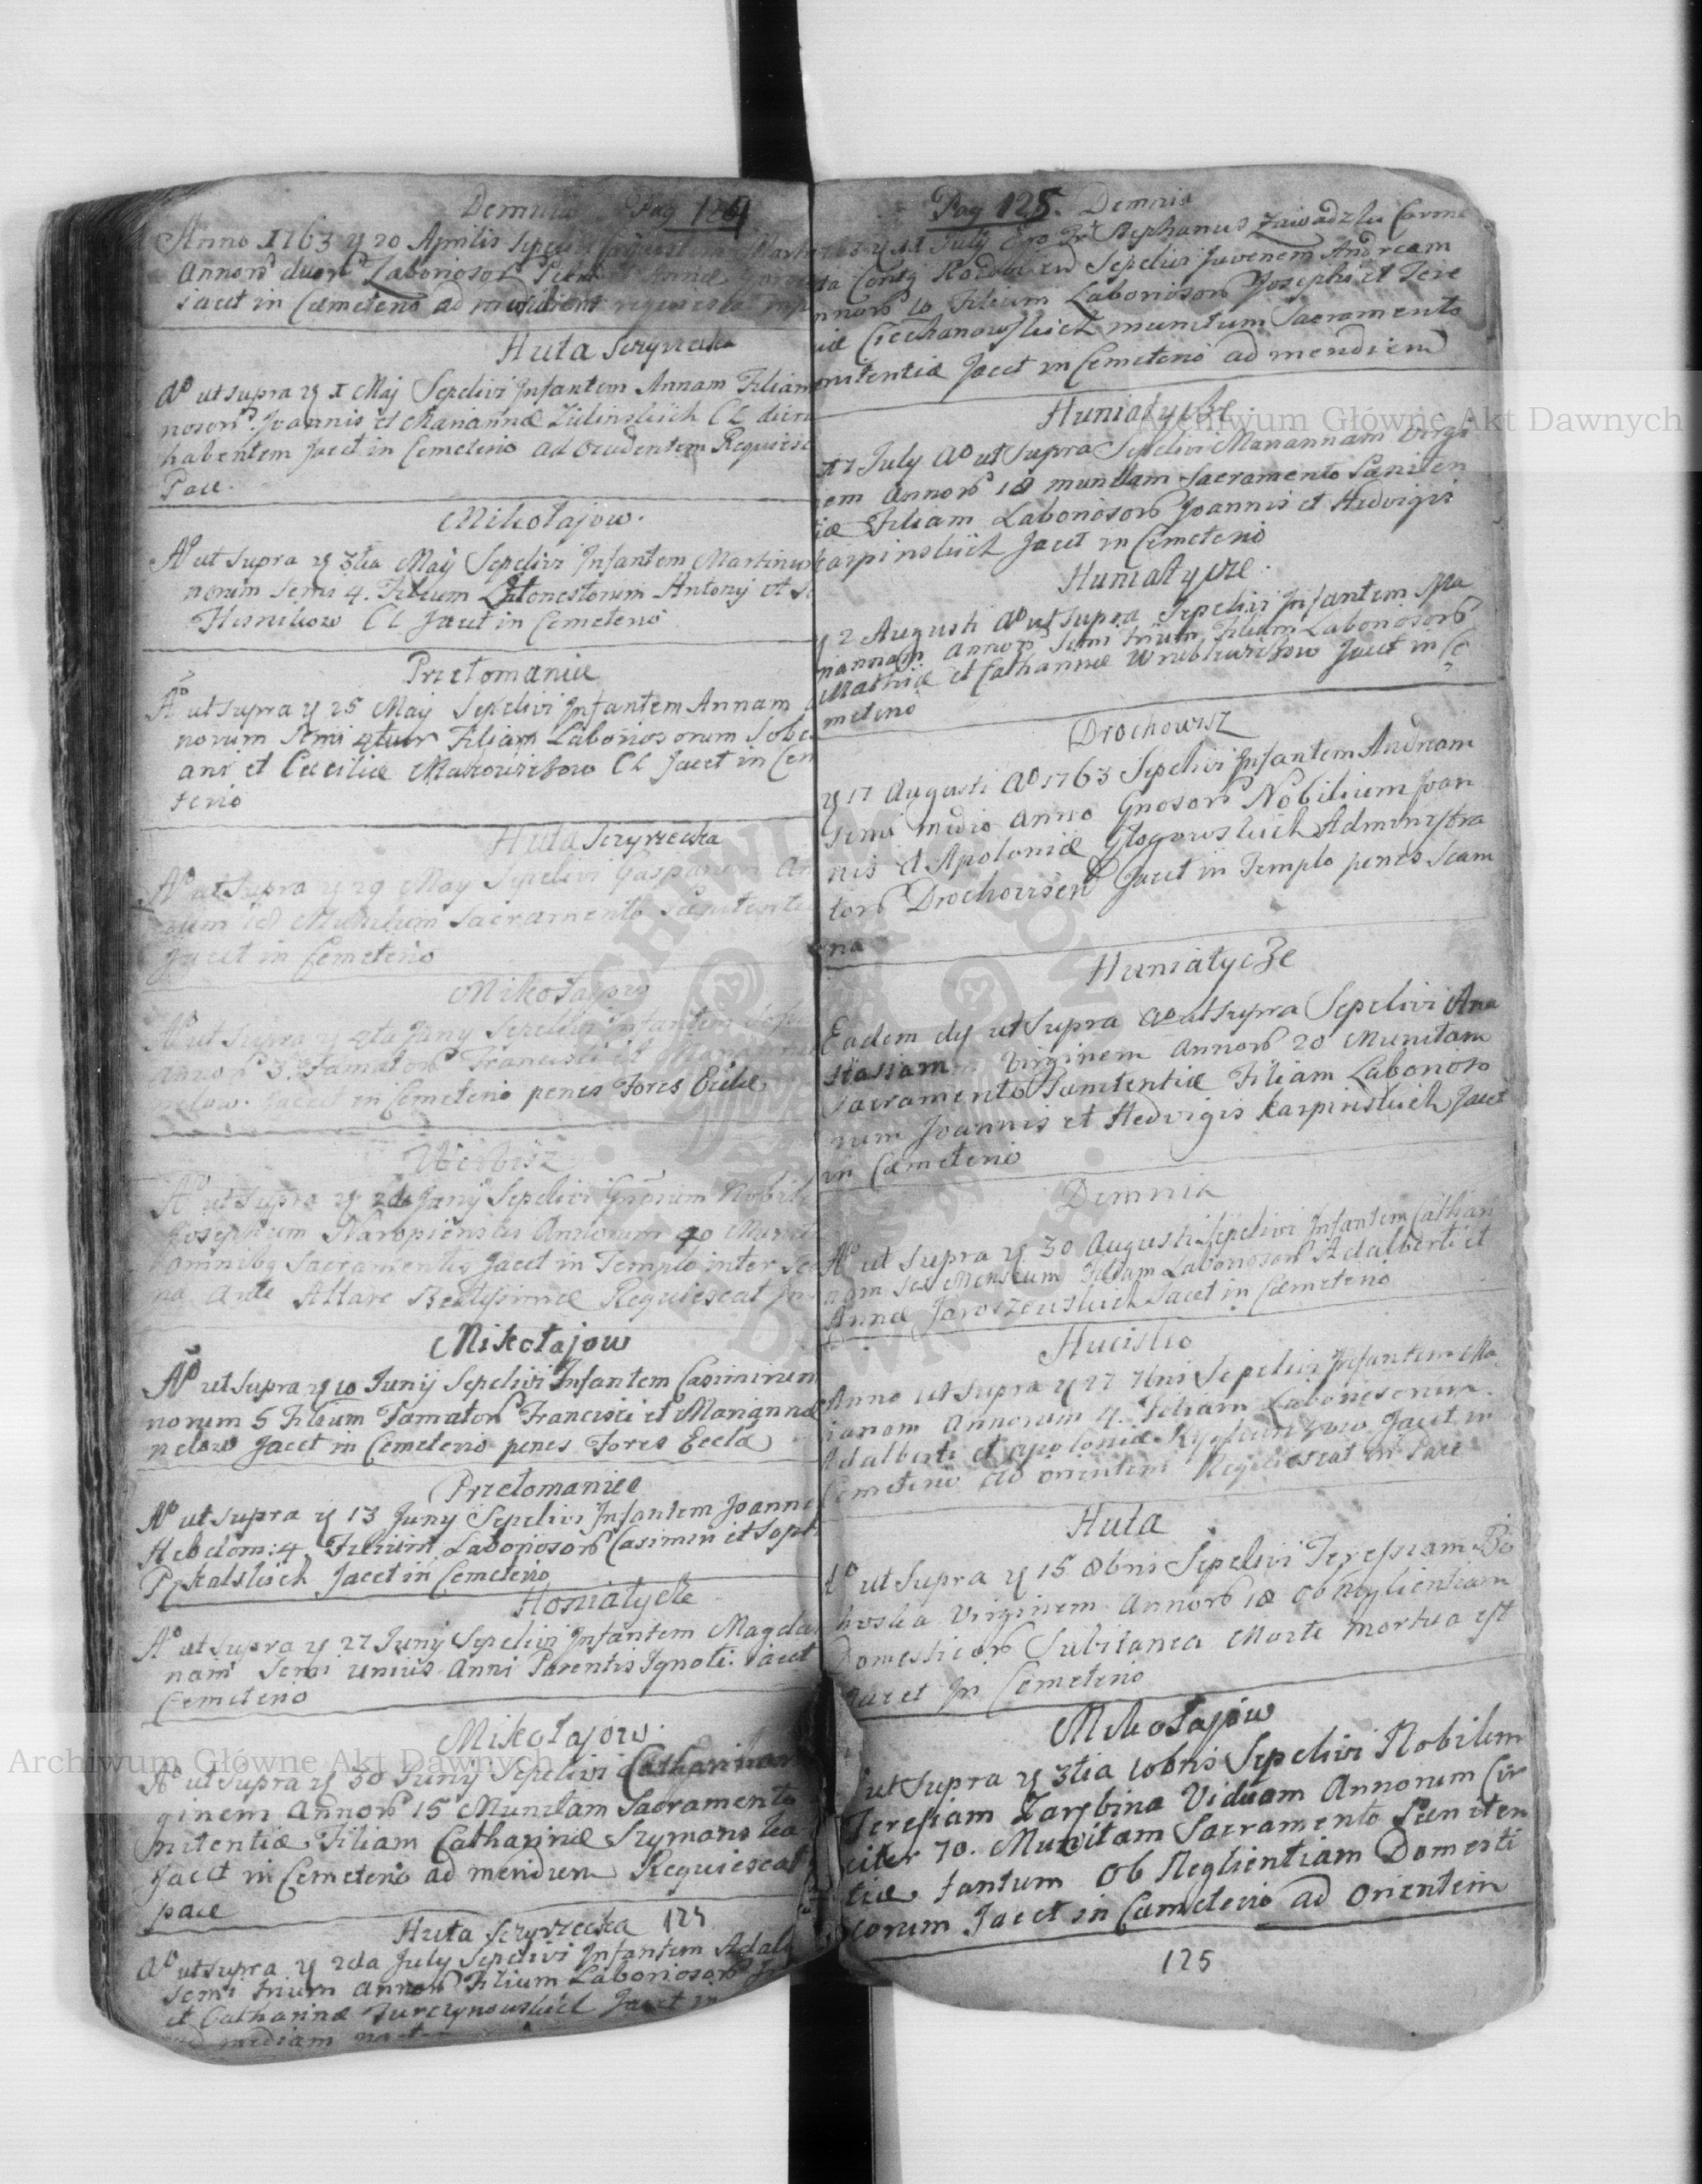 Demnia Pag 124
Anno 1763 y 20 Aprilis
Annor duor Laboriosor
jacet in Cæmeterio ad meridient requiescat
Huta Szczyrzecka
Aº ut supra y 1 Maij Sepelivi Infantem Annam Filiam
nosor Joannis et Mariannæ Zielinskich CC dien
habentem Jacet in Cemeterio ad Occidentem Requiesc
Pace.
Mikołajow.
Aº ut supra y 3tia Maij Sepelivi Infantem Martinum
norum semi 4. Filium Honestorum Antonij et
CC Jacet in Cemeterio
Przełomanice
Aº ut supra y 25 Maij Sepelivi Infantem Annam
norum semi 4tuor Filiam Laboriosorum Sobe
ani et Cæciliæ CC Jacet in Cem
terio
Huta Szczyrzecka
Aº ut supra y 29 May Sepelivi Gasparum An
num 18 Munitum Sacramento Pænitentiæ
Jacet in Cemeterio
Mikołajow
Aº ut supra y 4ta Juny Sepelivi Infantem
Annor 3. Famator Francisci et Mariannæ
Jacet in Cemeterio penes Fores Eccle
Werbisz
Aº ut supra y 2da Junij Sepelivi Gnorum Nobil
Josephum Annorum 40 Munit
omnibq Sacramentis Jacet in Templo inter
na Ante Altare Beatissimæ Requiescat In
Mikołajow
Aº ut supra y 10 Junij Sepelivi Infantem Casimirum
norum 5 Filium Famator Francisci et Mariannæ
nelow Jacet in Cemeterio penes Fores Eccla
Przełomanice
Aº ut supra y 13 Juny Sepelivi Infantem Joanne
Hebdom: 4. Filium Laboriosor Casimiri et Soph
Jacet in Cemeterio
Honiatycze
Aº ut supra y 27 Junij Sepelivi Infantem Magdal
nam semi unius Anni Parentis Ignoti. Jacet
Cemeterio
Mikołajow.
Aº ut supra y 30 Juny Sepelivi Catharinam
ginem Annor 15 Munitam Sacramento
nitentiæ Filiam Catharinæ Szymanska
Jacet in Cemeterio ad meridiem Requiescat
pace
Huta Szczyrzecka 125
Aº ut supra y 2da July Sepelivi Infantem Adal
semi trium Annor Filium Laboriosor
et Catharinæ Turczynowskich Jacet in
ad mediam
Pag 125. Demnia
July Ego Fr Stephanus Zawadzki Carme
Sepelivi Juvenem Andream
nnor 10 Filium Laboriosor Josephi et Tere
iæ Ciechanowskich munitum Sacramento
nitentiæ Jacet in Cemeterio ad meridiem
Huniatycze
17 July Aº ut supra Sepelivi Mariannam Virgi
nem Annor 18 munitam Sacramento Pæniten
tiæ Filiam Laboriosor Joannis et Hedvigis
Karpinskich Jacet in Cemeterio
Huniatycze.
y 2 Augusti Aº ut supra Sepelivi Infantem Ma
riannam Annor semi trium Filiam Laboriosor
Mathiæ et Catharinæ Jacet in Ce
meterio
Drochowisz
y 17 Augusti Aº 1763 Sepelivi Infantem
semi medio Anno Gnosor Nobilium Joan
nis et Apoloniæ Głogowskich Administra
tor Drochovisen Jacet in Templo penes Scam
na
Huniatycze
Eadem dij ut supra Aº ut supra Sepelivi Ana
stasiam Virginem Annor 20 Munitam
Sacramento Pænitentiæ Filiam Laborioso
rum Joannis et Hedvigis Karpinskich Jacet
in Cæmeterio
Demnia
Aº ut supra y 30 Augusti Sepelivi Infantem Cathari
nam sex Mensium Filiam Laboriosor Adalberti et
Annæ Jaroszewskich Jacet in Cæmeterio
Hucisko
Anno ut supra y 27 7bris Sepelivi Infantem Ma
rianam Annorum 4. Filiam Laboriosorum
Adalberti et Apoloniæ Jacet in
Cemeterio ad orientem Requiescat in Pace
Huta
Aº ut supra y 15 8bris Sepelivi Teressiam
Virginem Annor 18 ob neglientiam
Domesticor Subitanea Morte mortua est
Jacet In Cemeterio
Mikołajow
ut supra y 3tia 10bris Sepelivi Nobilem
Teresiam Viduam Annorum Cir
citer 70. Munitam Sacramento Pæniten
tiæ tantum ob Neglientiam Domesti
corum Jacet in Cæmeterio ad Orientem
125
Archiwum Główne Akt Dawnych
Archiwum Główne Akt Dawnych
ARCHIWUM GŁÓWNE AKT DAWNYCH